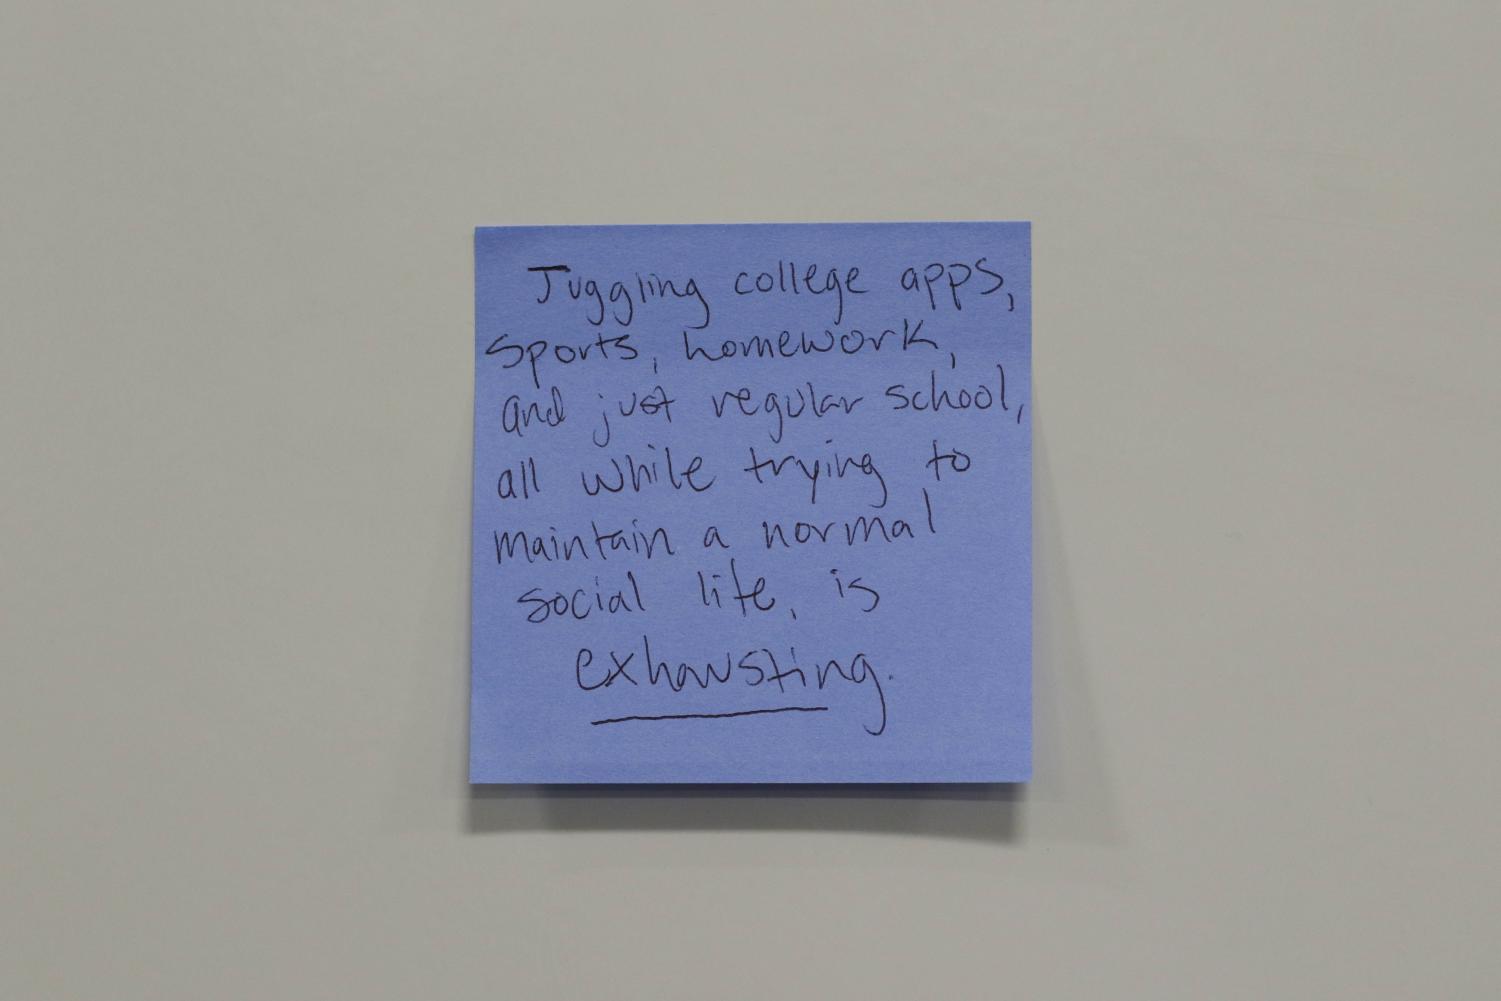 Juggling college apps,
sports, homework,
and just regular school,
all while trying to
maintain a normal
social life, is
exhausting.